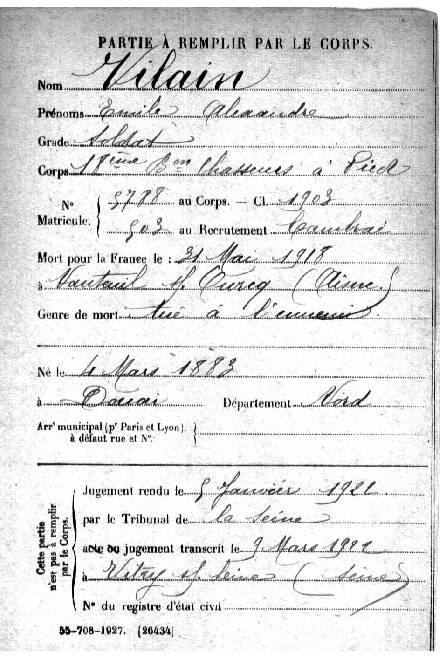 PARTIE À REMPLIR PAR LE CORPS.
Nom Vilain
Prénoms Emile Alexandre
Grade Soldat
Corps 18ème Bon Chasseurs à Pied
N° Matricule. { 5788 au Corps. — Cl. 1903
903 au Recrutement Cambrai
Mort pour la France le : 31 Mai 1918
à Nauteuil s/ Ourcq (Aisne)
Genre de mort tué à l'ennemi
Né le 4 Mars 1883
à Douai Département Nord
Arrt municipal (pr Paris et Lyon).
à défaut rue et N°.
Cette partie n'est pas à remplir par le Corps.
Jugement rendu le 5 Janvier 1921
par le Tribunal de la Seine
acte ou jugement transcrit le 9 Mars 1921
à Vitry s/ Seine (Seine)
N° du registre d'état civil
55-708-1927. [26434]